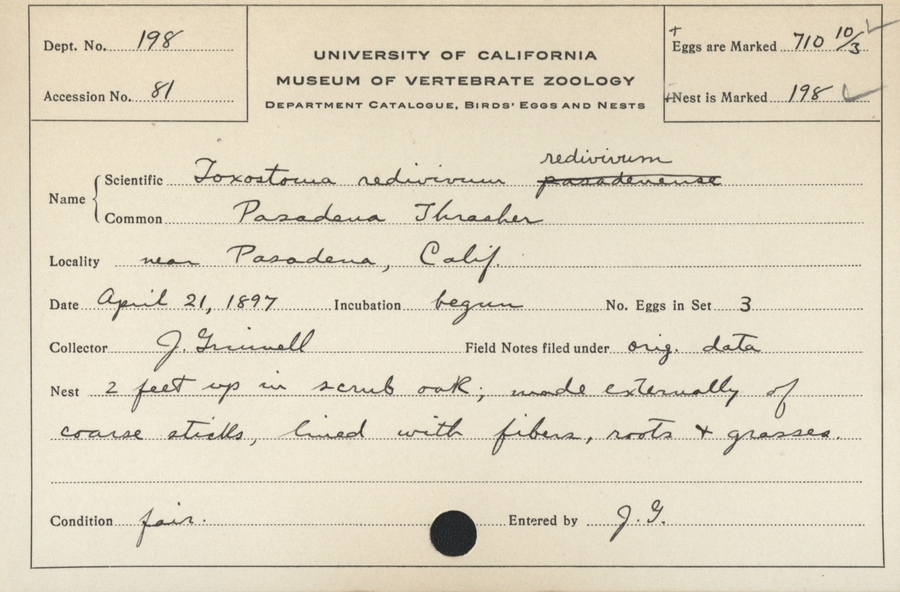 Dept. No. 198
Accession No. 81
UNIVERSITY OF CALIFORNIA
MUSEUM OF VERTEBRATE ZOOLOGY
DEPARTMENT CATALOGUE, BIRDS' EGGS AND NESTS
+
Eggs are Marked 710 10/3
Nest is Marked 198
redivivum
Name Scientific Toxostoma redivivum pasadenense
Common Pasadena Thrasher
Locality near Pasadena, Calif.
Date April 21, 1897 Incubation begun No. Eggs in Set 3
Collector J. Grinnell Field Notes filed under orig. data
Nest 2 feet up in scrub oak; made externally of
coarse sticks, lined with fibers, roots + grasses.
Condition fair. Entered by J. G.